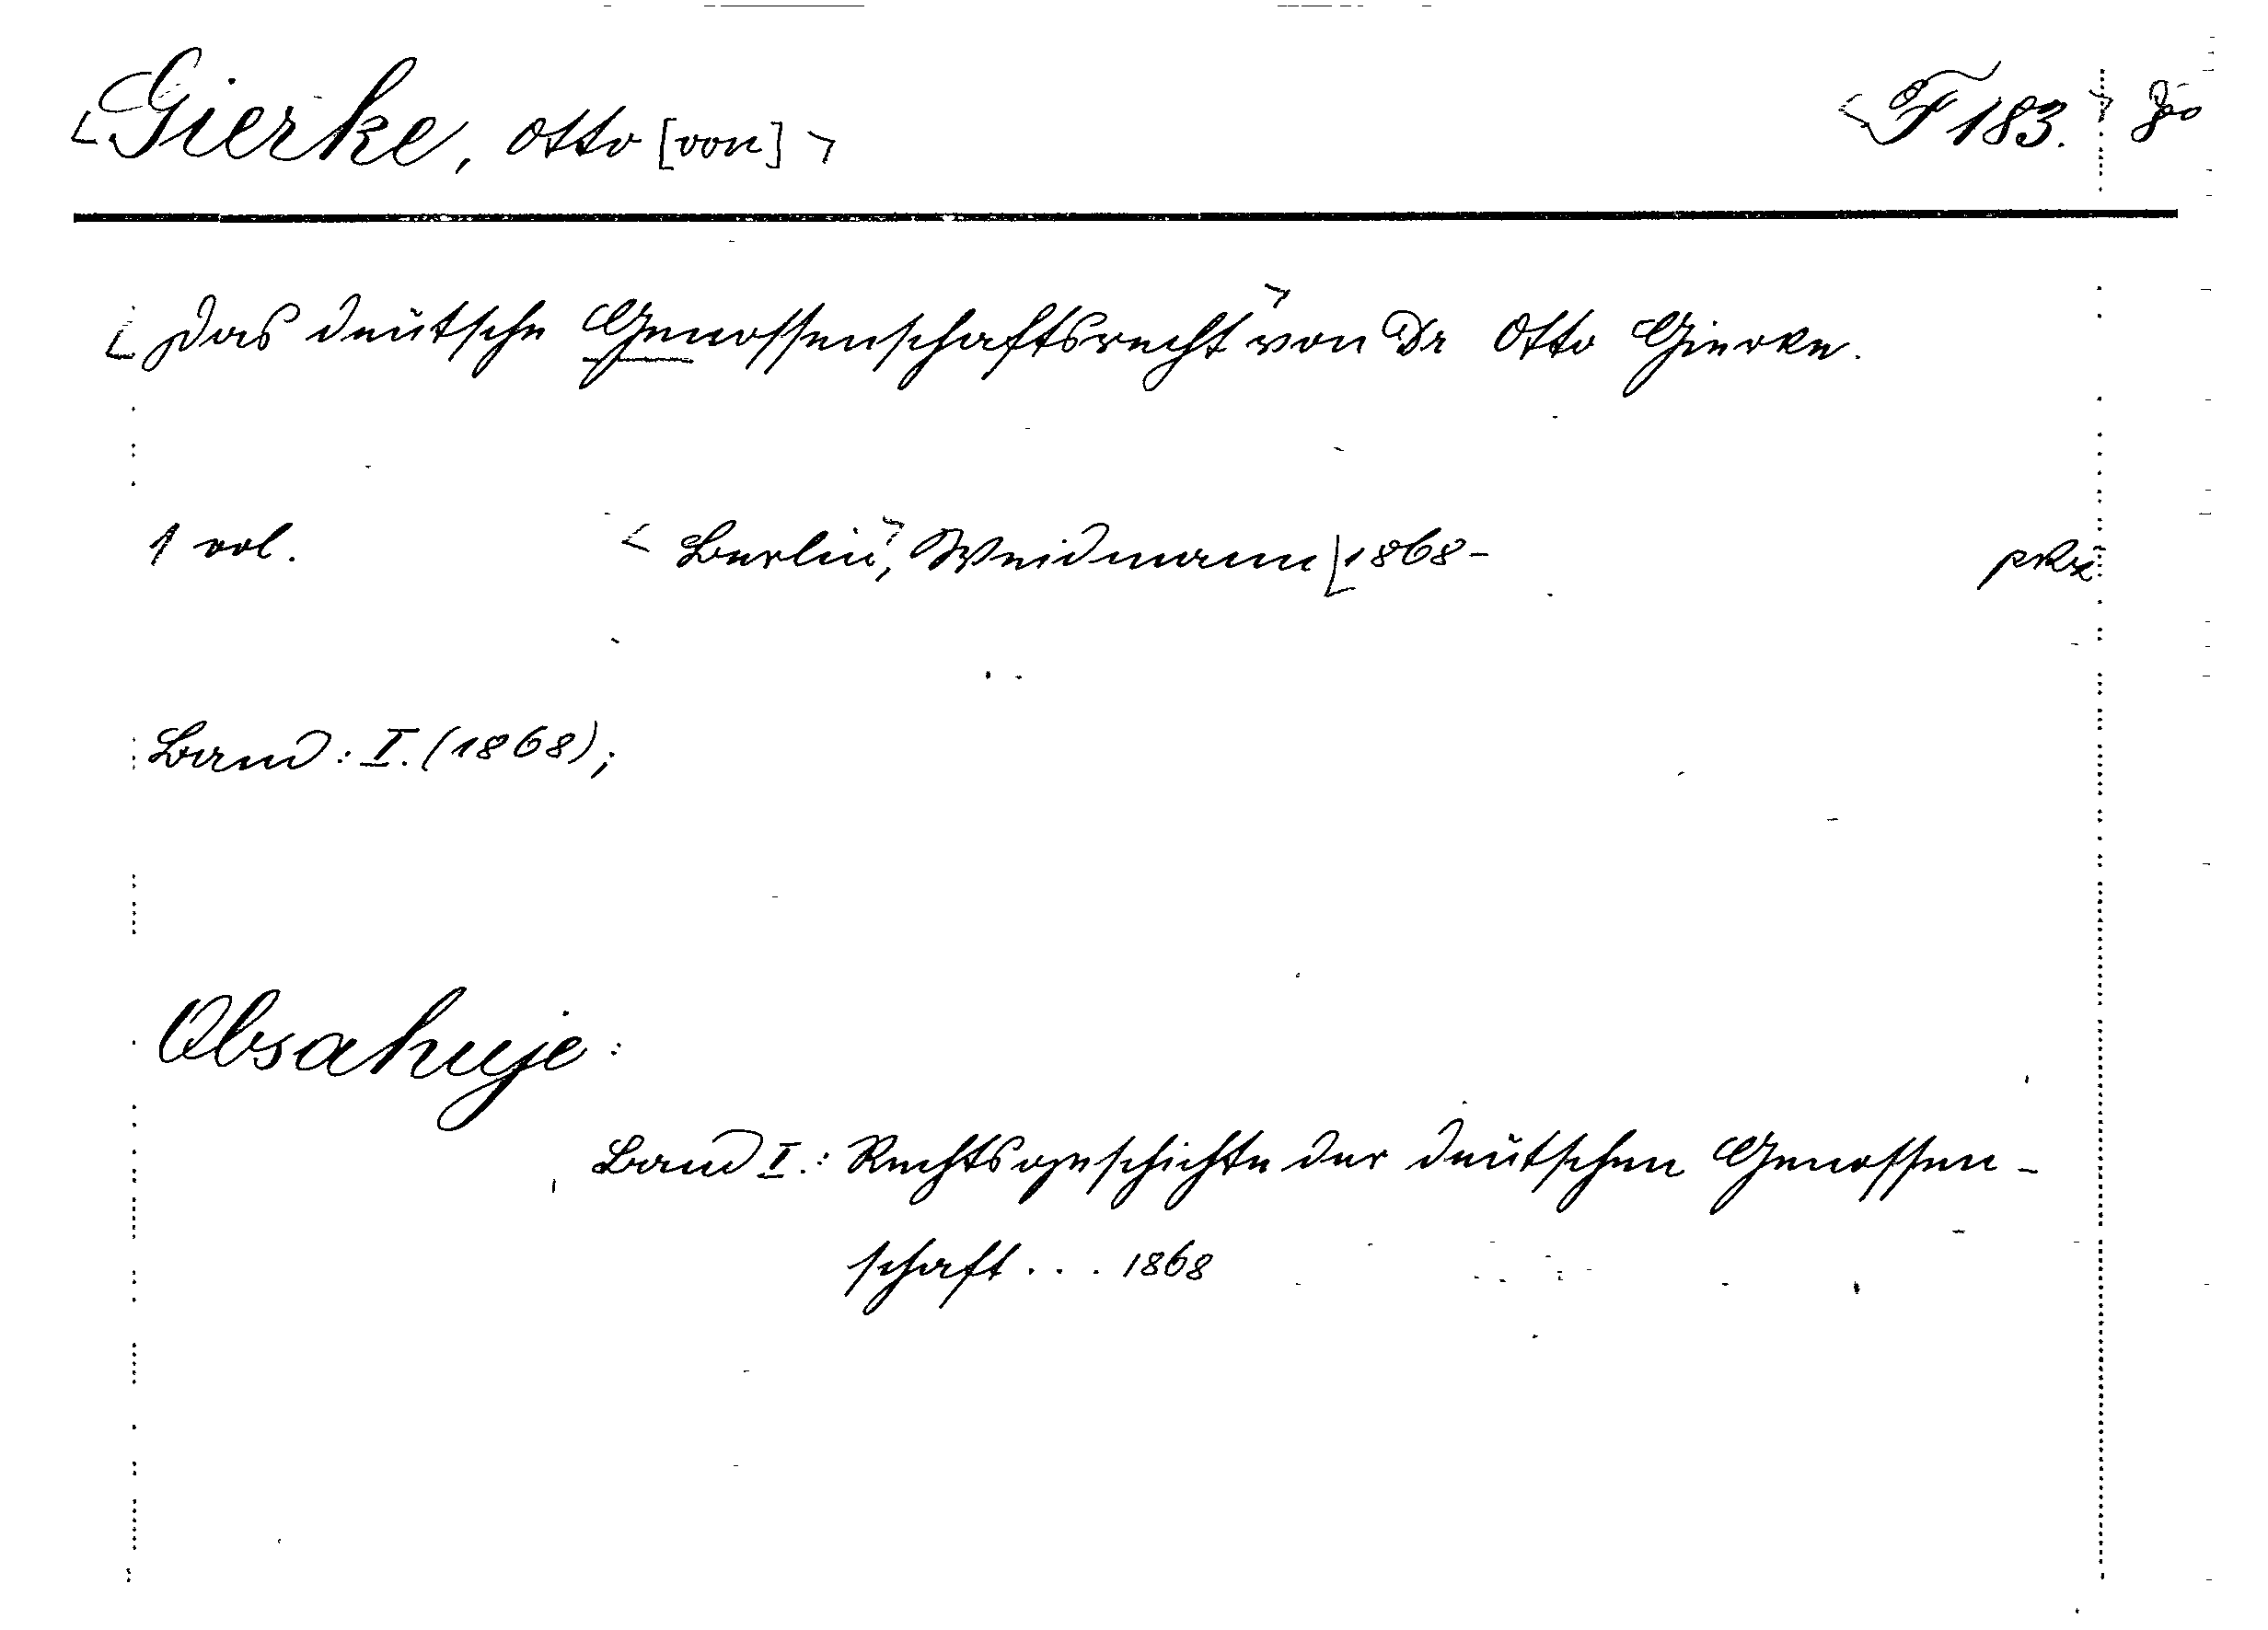 Gierke, Otto [von] F 183.
Das deutsche Genossenschaftsrecht von Dr Otto Gierke.
1 vol. Berlin, Weidmann 1868-
Band: I. (1868);
Obsahuje:
Band I.: Rechtsgeschichte der deutschen Genossen-
schaft... 1868